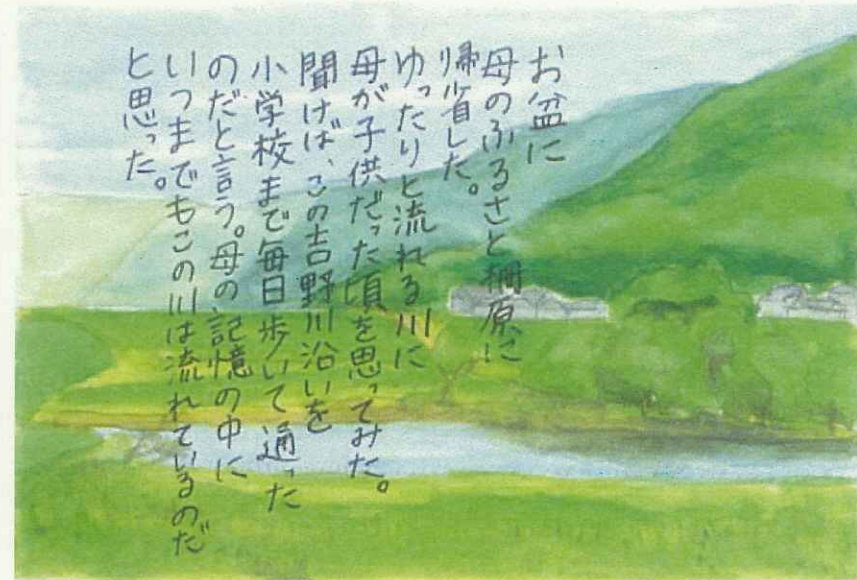 お盆に
母のふるさと柵原に
帰省した。
ゆったりと流れる川に
母が子供だった頃を思ってみた。
聞けば、この吉野川沿いを
小学校まで毎日歩いて通った
のだと言う。母の記憶の中に
いつまでもこの川は流れているのだ
と思った。